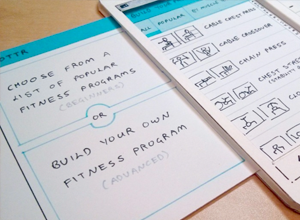 CHOOSE FROM A
LIST OF POPULAR
FITNESS PROGRAMS
(BEGINNERS)
OR
BUILD YOUR OWN
FITNESS PROGRAM
(ADVANCED)
ALL POPULAR BY MUSCLE
CABLE CHEST PRESS
CABLE CROSSOVER
CHAIN PRESS
CHEST